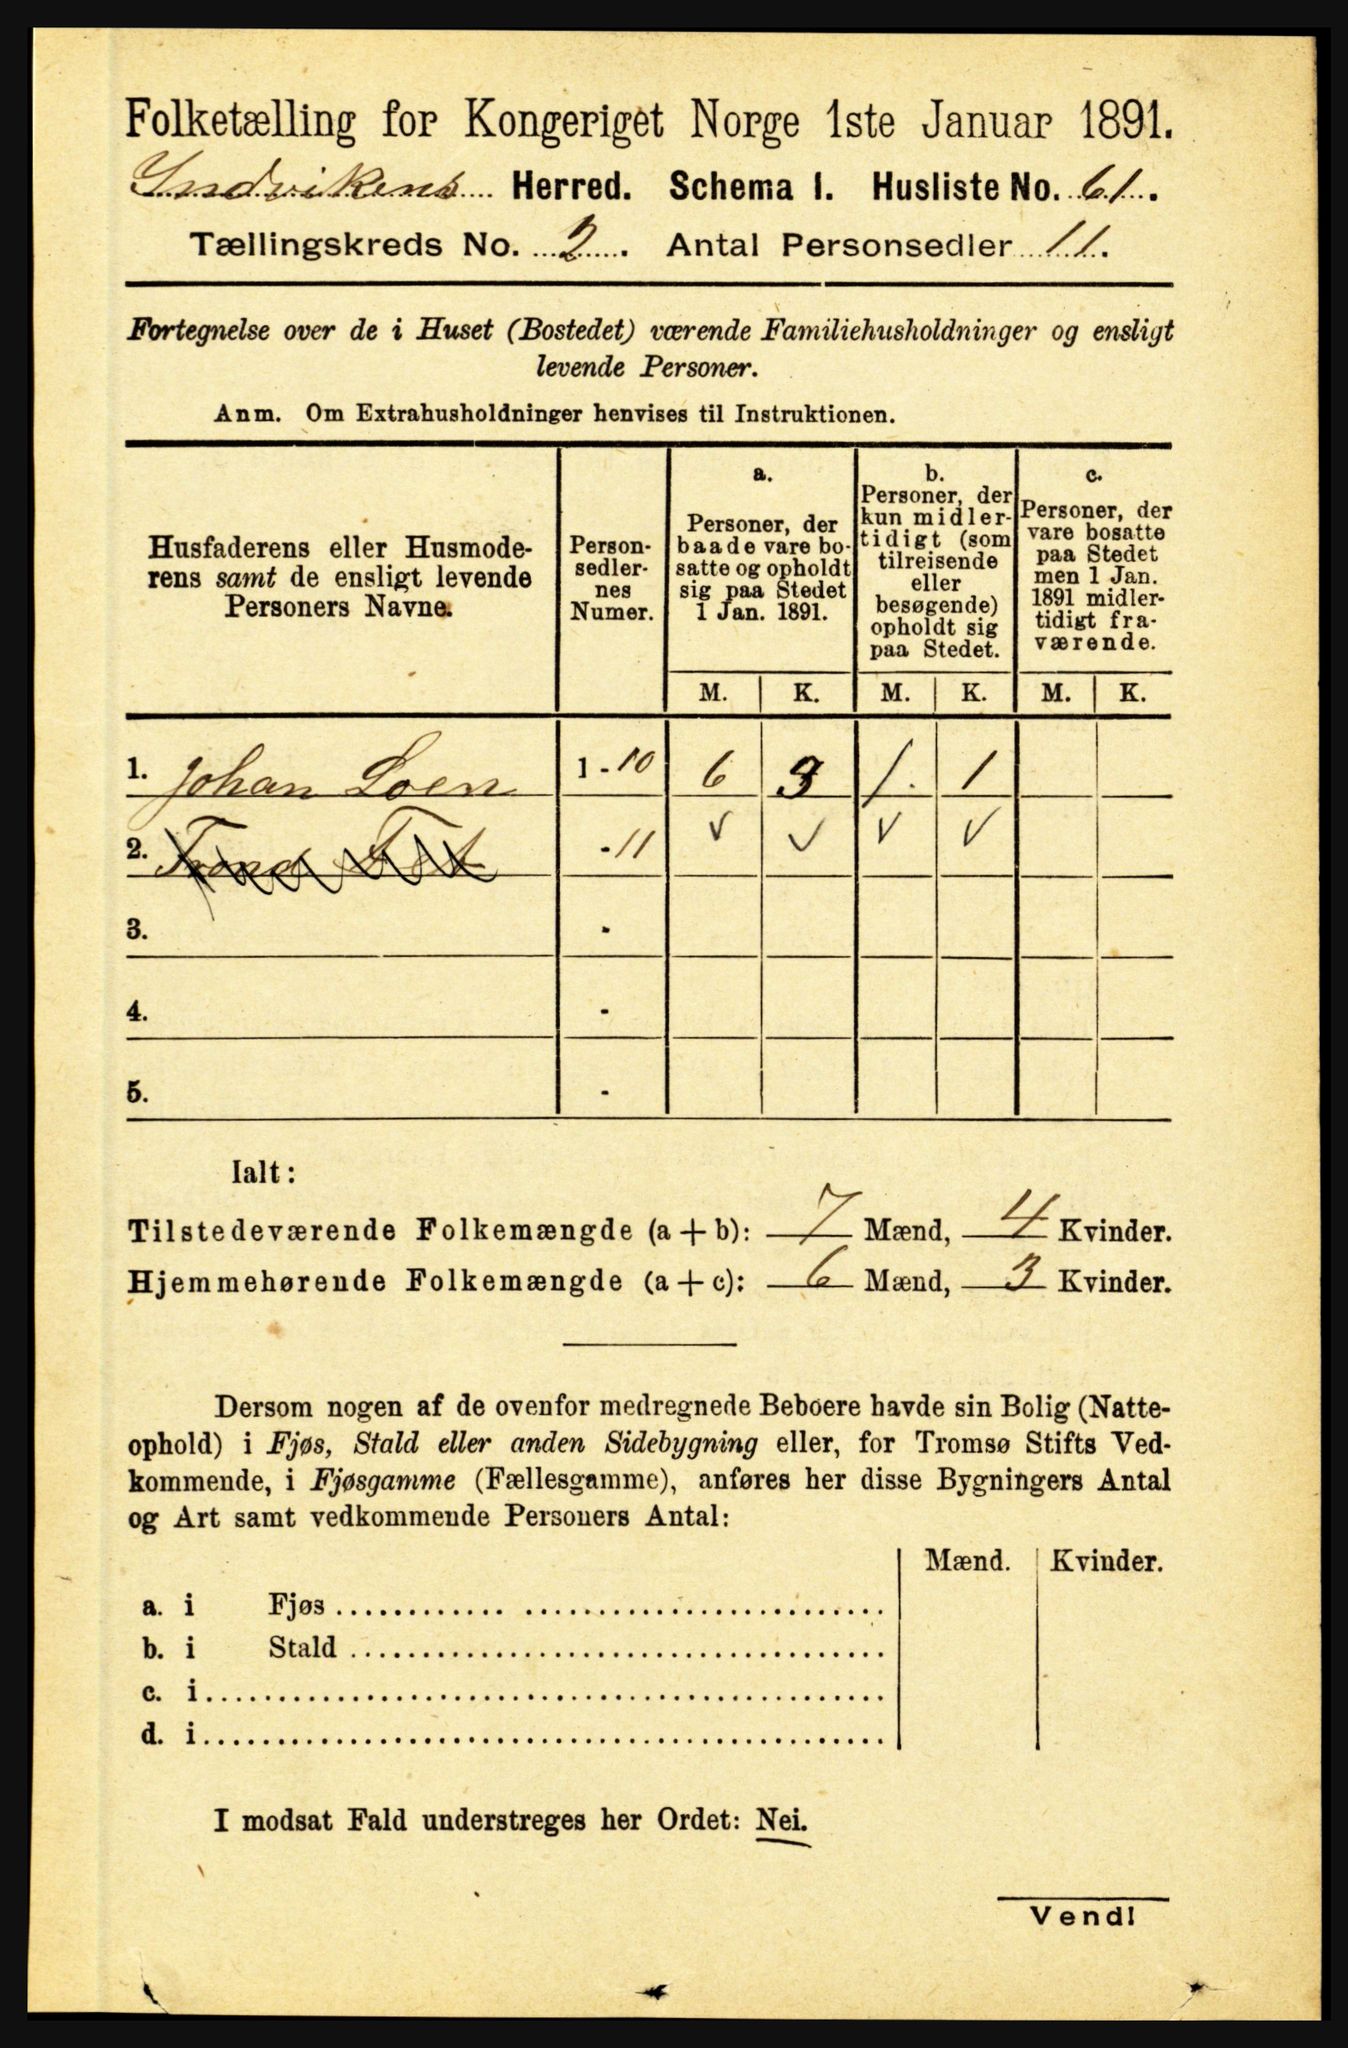 Folketælling for Kongeriget Norge 1ste Januar 1891.
Indvikens Herred. Schema I. Husliste No. 61.
Tællingskreds No. 2. Antal Personsedler 11.
Fortegnelse over de i Huset (Bostedet) værende Familiehusholdninger og ensligt
levende Personer.
Anm. Om Extrahusholdninger henvises til Instruktionen.
Husfaderens eller Husmode-
rens samt de ensligt levende
Personers Navne.
Person-
sedler-
nes
Numer.
a.
Personer, der
baade vare bo-
satte og opholdt
sig paa Stedet
1 Jan. 1891.
b.
Personer, der
kun midler-
tidigt (som
tilreisende
eller
besøgende)
opholdt sig
paa Stedet.
c.
Personer, der
vare bosatte
paa Stedet
men 1 Jan.
1891 midler-
tidigt fra-
værende.
M. K. M. K. M. K.
1. Johan Loen 1 - 10 6 3 1. 1
2. Trond - 11 ✓ ✓ ✓ ✓
3. -
4. -
5. -
Ialt:
Tilstedeværende Folkemængde (a + b): 7 Mænd, 4 Kvinder.
Hjemmehørende Folkemængde (a + c): 6 Mænd, 3 Kvinder.
Dersom nogen af de ovenfor medregnede Beboere havde sin Bolig (Natte-
ophold) i Fjøs, Stald eller anden Sidebygning eller, for Tromsø Stifts Ved-
kommende, i Fjøsgamme (Fællesgamme), anføres her disse Bygningers Antal
og Art samt vedkommende Personers Antal:
Mænd. Kvinder.
a. i Fjøs
b. i Stald
c. i
d. i
I modsat Fald understreges her Ordet: Nei.
Vend!